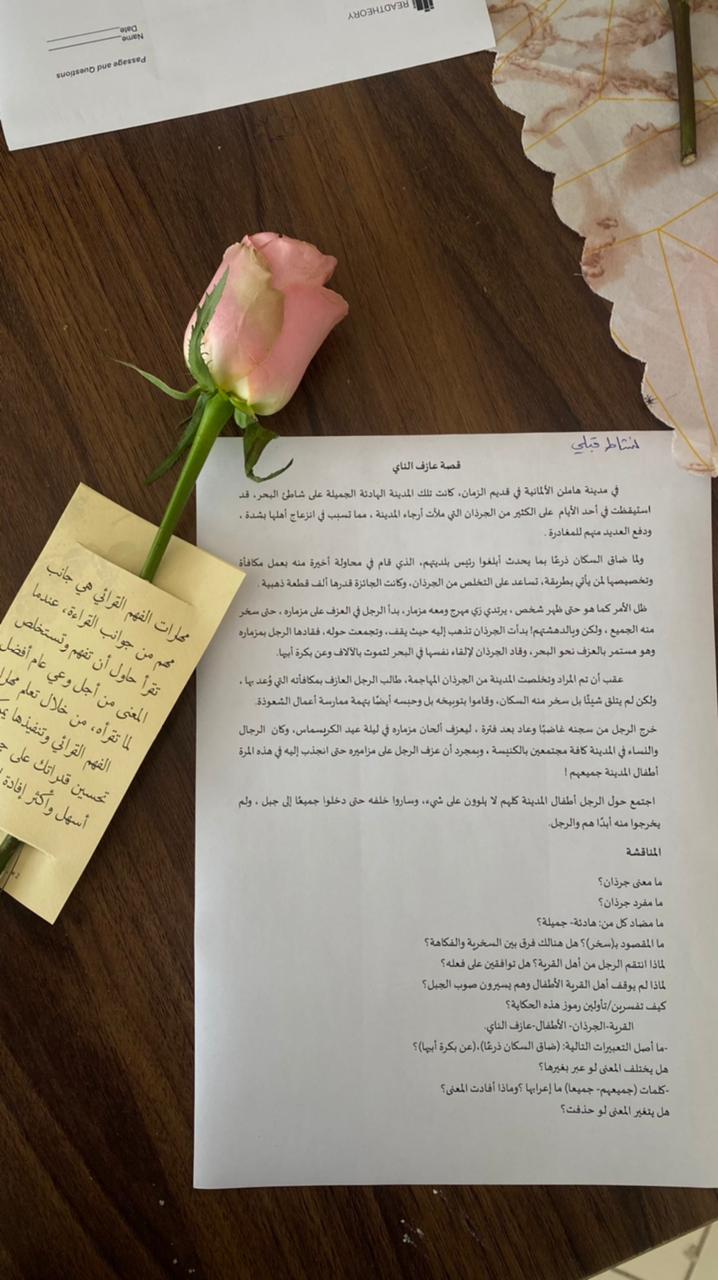 READTHEORY
Name
Date
Passage and Questions
نشاط قبلي
قصة عازف الناي
في مدينة هاملن الألمانية في قديم الزمان، كانت تلك المدينة الهادئة الجميلة على شاطئ البحر، قد
استيقظت في أحد الأيام على الكثير من الجرذان التي ملأت أرجاء المدينة ، مما تسبب في انزعاج أهلها بشدة ،
ودفع العديد منهم للمغادرة .
ولما ضاق السكان ذرعًا بما يحدث أبلغوا رئيس بلديتهم، الذي قام في محاولة أخيرة منه بعمل مكافأة
وتخصيصها لمن يأتي بطريقة، تساعد على التخلص من الجرذان، وكانت الجائزة قدرها ألف قطعة ذهبية .
ظل الأمر كما هو حتى ظهر شخص ، يرتدي زي مهرج ومعه مزمار، بدأ الرجل في العزف على مزماره ، حتى سخر
منه الجميع ، ولكن وبالدهشتهم! بدأت الجرذان تذهب إليه حيث يقف، وتجمعت حوله، فقادها الرجل بمزماره
وهو مستمر بالعزف نحو البحر، وقاد الجرذان لإلقاء نفسها في البحر لتموت بالآلاف وعن بكرة أبيها.
عقب أن تم المراد وتخلصت المدينة من الجرذان المهاجمة، طالب الرجل العازف بمكافأته التي وُعد بها ،
ولكن لم يتلق شيئًا بل سخر منه السكان، وقاموا بتوبيخه بل وحبسه أيضًا بتهمة ممارسة أعمال الشعوذة.
خرج الرجل من سجنه غاضبًا وعاد بعد فترة ، ليعزف ألحان مزماره في ليلة عيد الكريسماس، وكان الرجال
والنساء في المدينة كافة مجتمعين بالكنيسة ، وبمجرد أن عزف الرجل على مزاميره حتى انجذب إليه في هذه المرة
أطفال المدينة جميعهم !
اجتمع حول الرجل أطفال المدينة كلهم لا يلوون على شيء، وساروا خلفه حتى دخلوا جميعًا إلى جبل ، ولم
يخرجوا منه أبدًا هم والرجل.
المناقشة
ما معنى جرذان؟
ما مفرد جرذان؟
ما مضاد كل من: هادئة- جميلة؟
ما المقصود ب(سخر)؟ هل هنالك فرق بين السخرية والفكاهة؟
لماذا انتقم الرجل من أهل القرية؟ هل توافقين على فعله؟
لماذا لم يوقف أهل القرية الأطفال وهم يسيرون صوب الجبل؟
كيف تفسرين/تأولين رموز هذه الحكاية؟
القرية-الجرذان- الأطفال-عازف الناي.
-ما أصل التعبيرات التالية: (ضاق السكان ذرعًا)،(عن بكرة أبيها)؟
هل يختلف المعنى لو عبر بغيرها؟
-كلمات (جميعهم- جميعا) ما إعرابها ؟وماذا أفادت المعنى؟
هل يتغير المعنى لو حذفت؟
مهارات الفهم القرائي هي جانب
مهم من جوانب القراءة، عندما
تقرأ حاول أن تفهم وتستخلص
المعنى من أجل وعي عام أفضل
لما تقرأه، من خلال تعلم
الفهم القرائي وتنفيذها
تحسين قدراتك على
أسهل وأكثر إفادة